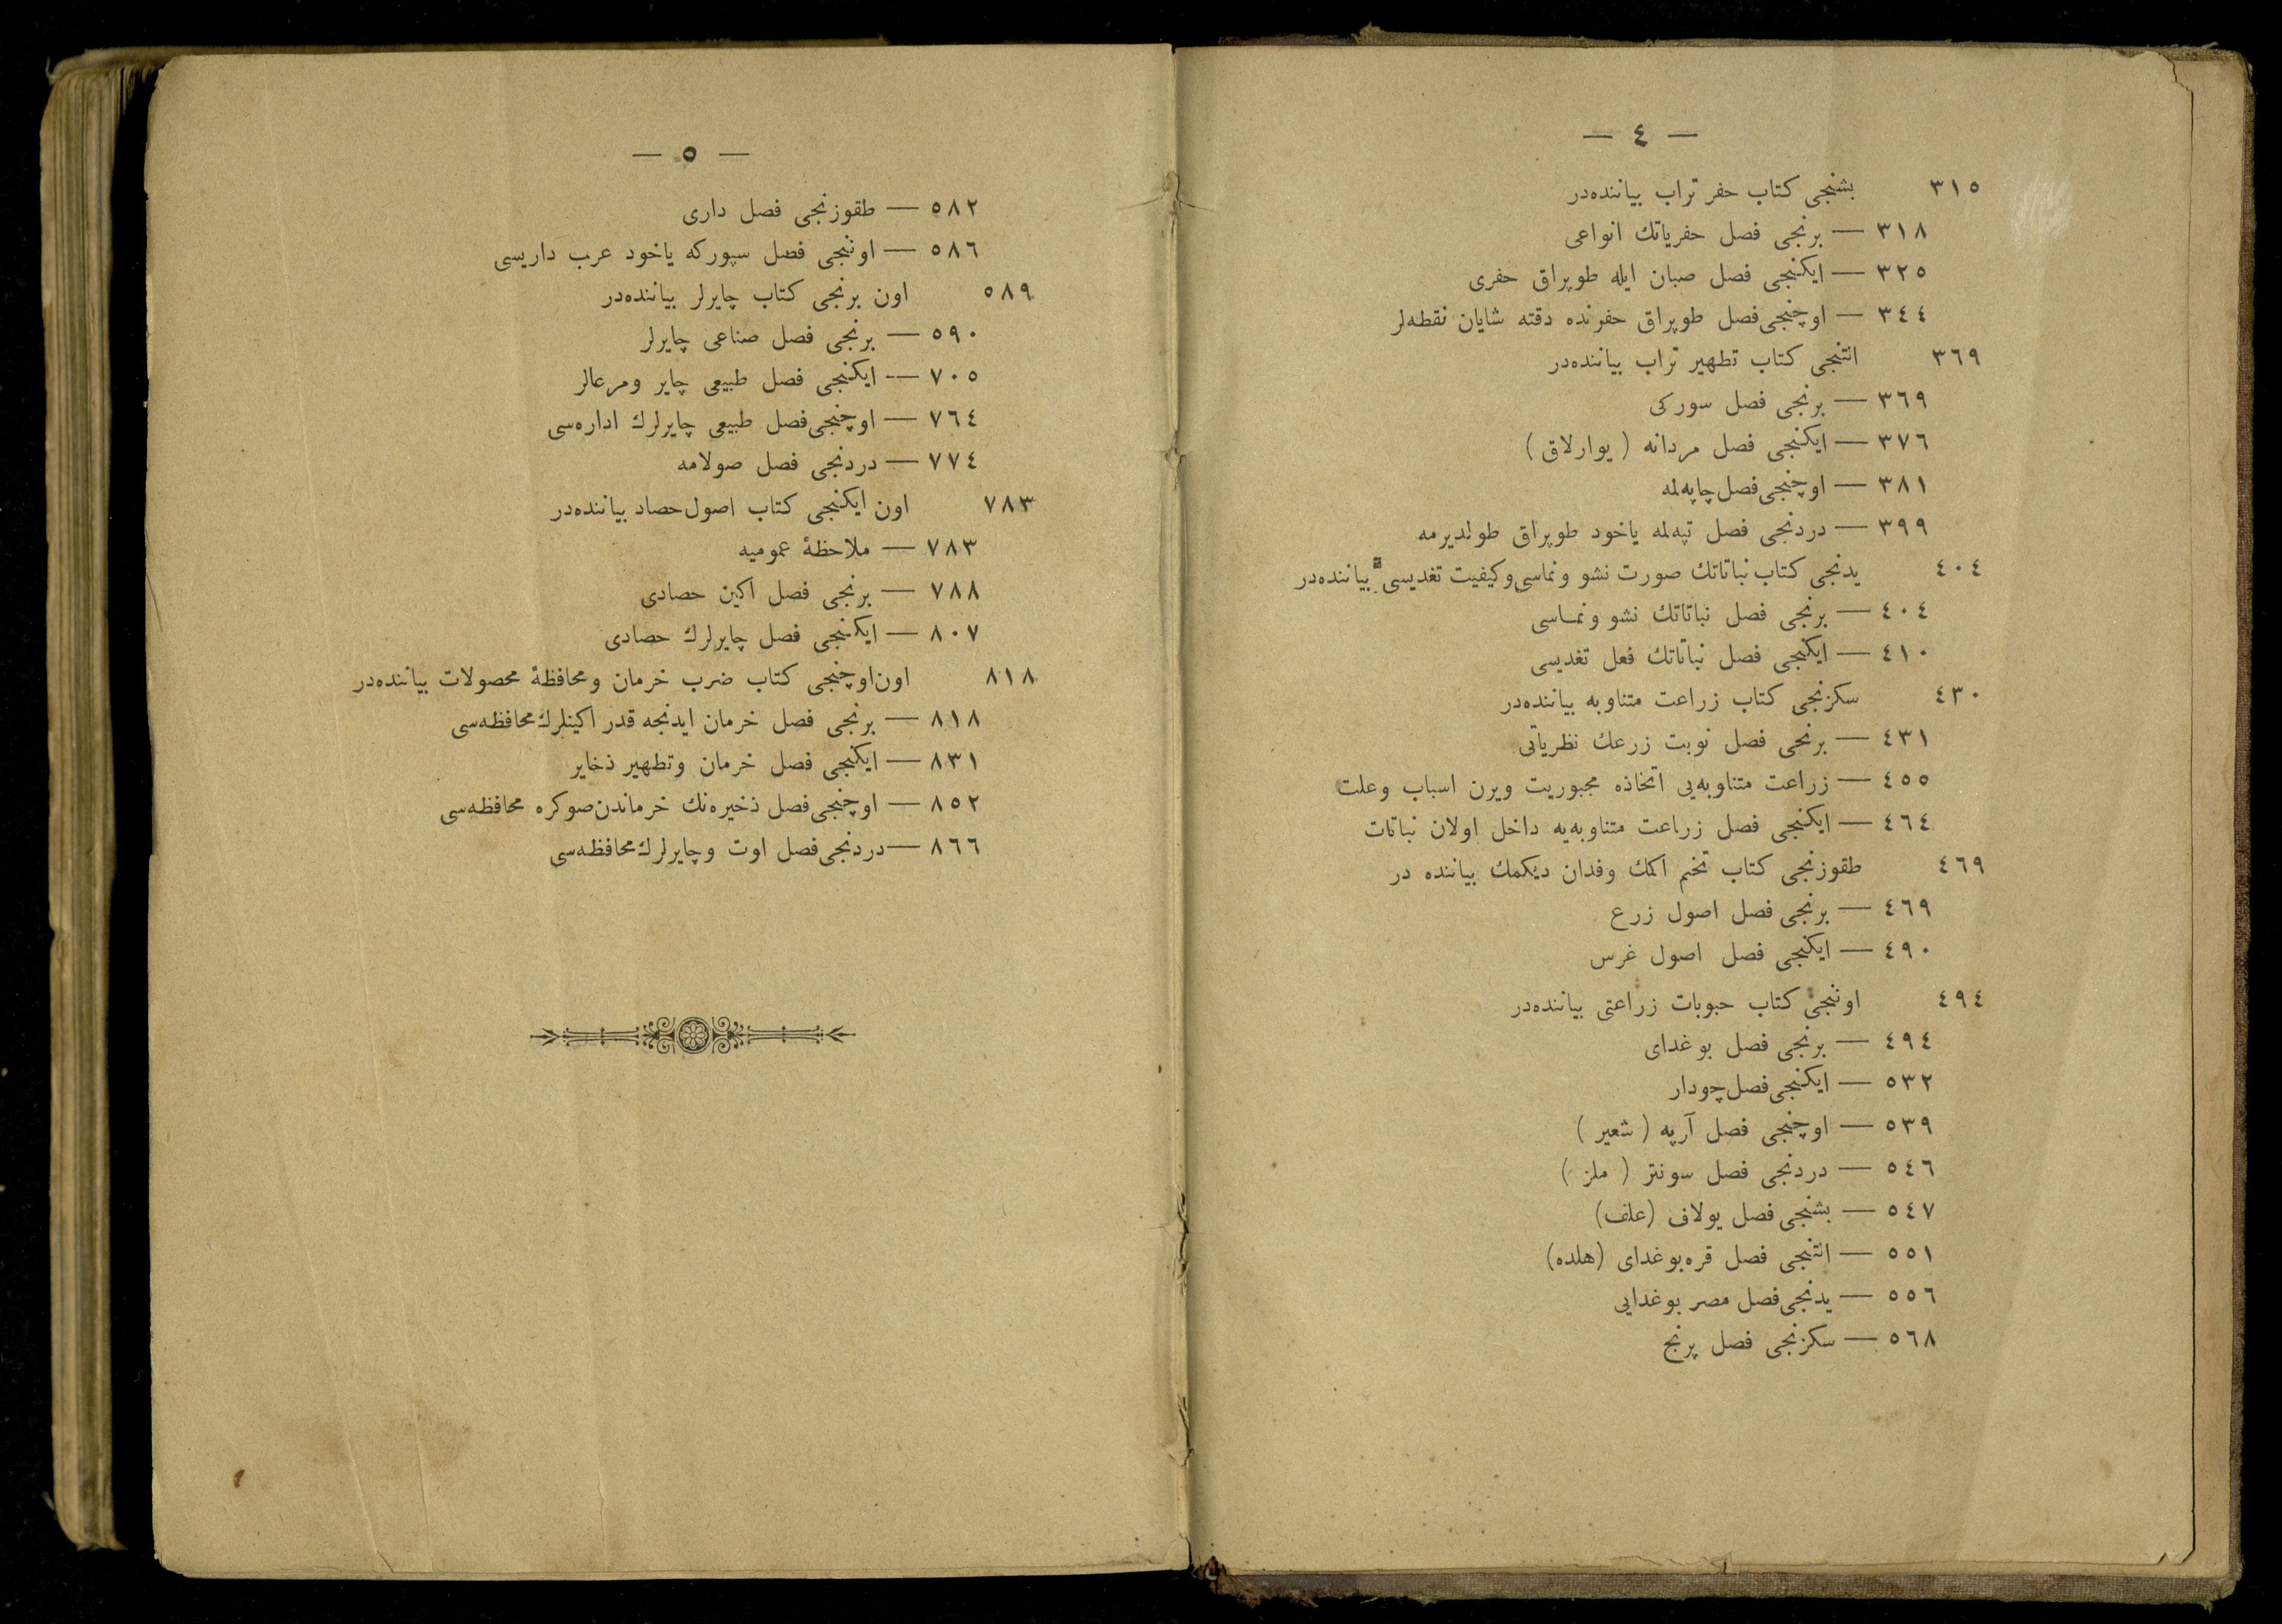 — ٤ —
٣١٥ بشنجی كتاب حفر تراب بياننده‌در
٣١٨ — برنجی فصل حفرياتك انواعی
٣٢٥ — ايكنجی فصل صبان ايله طوپراق حفری
٣٤٤ — اوچنجی فصل طوپراق حفرنده دقته شايان نقطه‌لر
٣٦٩ التنجی كتاب تطهير تراب بياننده‌در
٣٦٩ — برنجی فصل سوركی
٣٧٦ — ايكنجی فصل مردانه ( يوارلاق )
٣٨١ — اوچنجی فصل چاپه‌لمه
٣٩٩ — دردنجی فصل تپه‌لمه ياخود طوپراق طولديرمه
٤٠٤ يدنجی كتاب نباتاتك صورت نشو ونماسی وكيفيت تغديسی بياننده‌در
٤٠٤ — برنجی فصل نباتاتك نشو ونماسی
٤١٠ — ايكنجی فصل نباتاتك فعل تغديسی
٤٣٠ سكزنجی كتاب زراعت متناوبه بياننده‌در
٤٣١ — برنجی فصل نوبت زرعك نظرياتی
٤٥٥ — زراعت متناوبه‌يی اتخاذه مجبوريت ويرن اسباب وعلت
٤٦٤ — ايكنجی فصل زراعت متناوبه‌يه داخل اولان نباتات
٤٦٩ طقوزنجی كتاب تخم اكمك وفدان ديكمك بياننده در
٤٦٩ — برنجی فصل اصول زرع
٤٩٠ — ايكنجی فصل اصول غرس
٤٩٤ اوننجی كتاب حبوبات زراعتی بياننده‌در
٤٩٤ — برنجی فصل بوغدای
٥٣٢ — ايكنجی فصل چودار
٥٣٩ — اوچنجی فصل آرپه ( شعير )
٥٤٦ — دردنجی فصل سونتر ( ملز )
٥٤٧ — بشنجی فصل يولاف (علف)
٥٥١ — التنجی فصل قره‌بوغدای (هلده)
٥٥٦ — يدنجی فصل مصر بوغدايی
٥٦٨ — سكزنجی فصل پرنج
— ٥ —
٥٨٢ — طقوزنجی فصل داری
٥٨٦ — اوننجی فصل سپوركه ياخود عرب داريسی
٥٨٩ اون برنجی كتاب چايرلر بياننده‌در
٥٩٠ — برنجی فصل صناعی چايرلر
٧٠٥ — ايكنجی فصل طبيعی چاير ومرعالر
٧٦٤ — اوچنجی فصل طبيعی چايرلرك اداره‌سی
٧٧٤ — دردنجی فصل صولامه
٧٨٣ اون ايكنجی كتاب اصول حصاد بياننده‌در
٧٨٣ — ملاحظهٔ عموميه
٧٨٨ — برنجی فصل اكين حصادی
٨٠٧ — ايكنجی فصل چايرلرك حصادی
٨١٨ اون اوچنجی كتاب ضرب خرمان ومحافظهٔ محصولات بياننده‌در
٨١٨ — برنجی فصل خرمان ايدنجه قدر اكينلرك محافظه‌سی
٨٣١ — ايكنجی فصل خرمان وتطهير ذخاير
٨٥٢ — اوچنجی فصل ذخيره‌نك خرماندن صوكره محافظه‌سی
٨٦٦ — دردنجی فصل اوت وچايرلرك محافظه‌سی